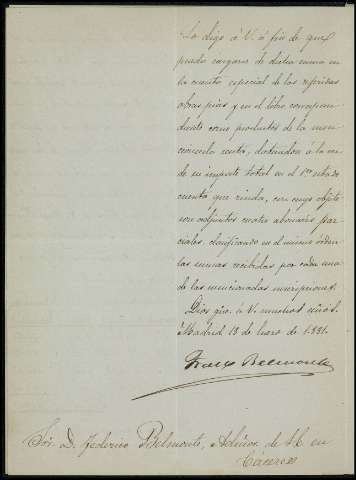 Lo digo á V. á fin de que
pueda cargarse de dicha suma en
la cuenta especial de las referidas
obras pias y en el libro correspon-
diente como productos de la men-
cionada renta, datandose á la vez
de su importe total en el 1er estado
cuenta que rinda, con cuyo objeto
son adjuntos cuatro abonarés par-
ciales, clasificando en el mismo orden
las sumas recibidas por cada una
de las mencionadas inscripciones.
Dios güe. á V. muchos años.
Madrid 13 de Enero de 1881.
Belmonte
Sor. D. Federico Belmonte, Admor. de H en
Cáceres